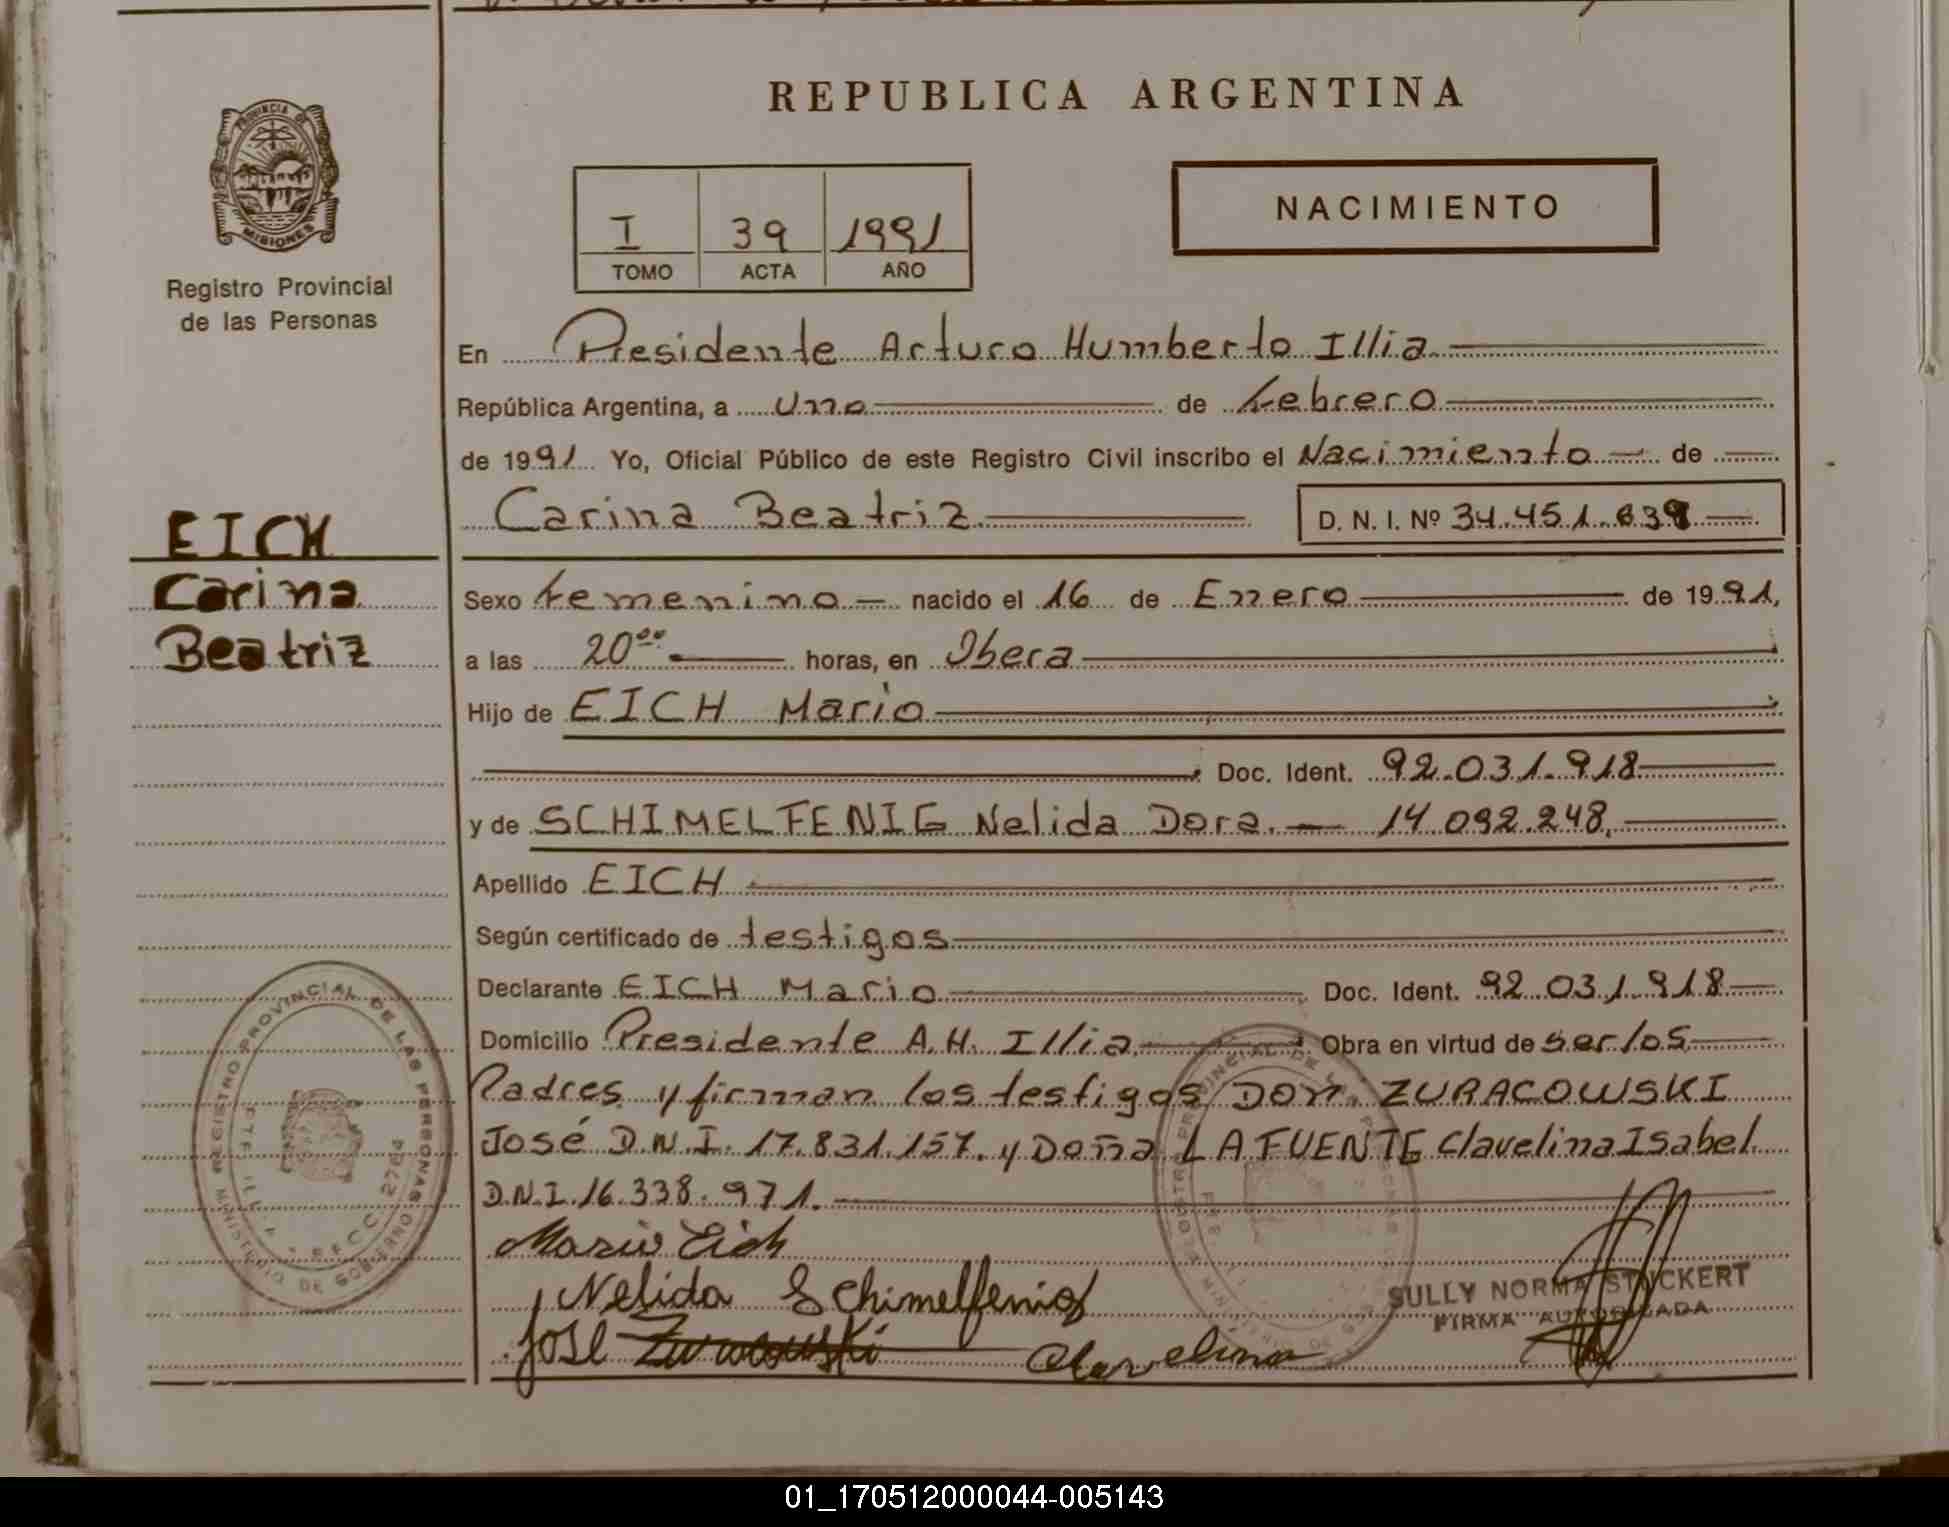 REPUBLICA ARGENTINA
PROVINCIA DE
MISIONES
Registro Provincial
de las Personas
I 39 1991
TOMO ACTA AÑO
NACIMIENTO
En Presidente Arturo Humberto Illia
República Argentina, a uno de febrero
de 1991 Yo, Oficial Público de este Registro Civil inscribo el Nacimiento de
Carina Beatriz D. N. I. Nº 34.451.639
EICH
Carina
Beatriz
Sexo femenino nacido el 16 de Enero de 1991,
a las 20⁰⁰ horas, en Obera
Hijo de EICH Mario
Doc. Ident. 92.031.918
y de SCHIMELFENIG Nelida Dora. 14.092.248,
Apellido EICH
Según certificado de testigos
Declarante EICH Mario Doc. Ident. 92.031.918
Domicilio Presidente A.H. Illia Obra en virtud de ser los
Padres y firman los testigos DON. ZURACOWSKI
José D.N.I. 17.831.157. y Doña LAFUENTE Clavelina Isabel
D.N.I. 16.338.971.
Mario Eich
Nelida Schimelfenig
José Zuracouski Clavelina
SULLY NORMA STOCKERT
FIRMA AUTORIZADA
REGISTRO PROVINCIAL DE LAS PERSONAS
MINISTERIO DE GOBIERNO
01_170512000044-005143